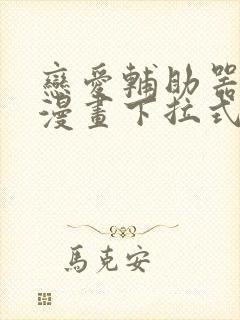 戀愛輔助器
漫畫下拉式
馬克安